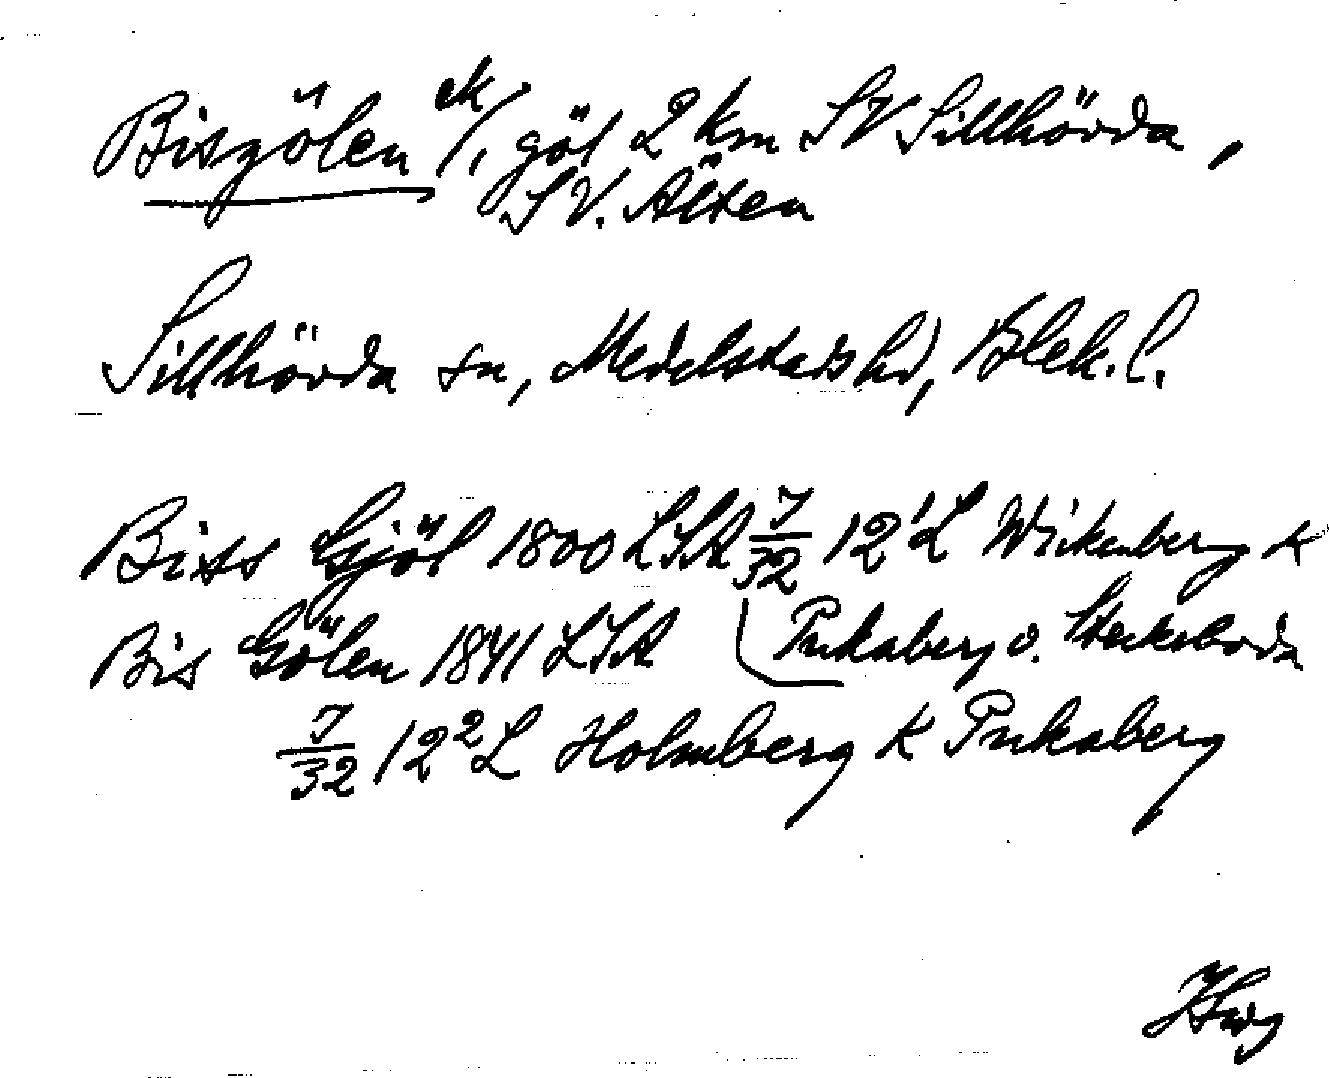 Bisgölen ek/, göl 2 km SV Sillhörda,
SV. Älten
Sillhövda sn, Medelstads hd, Blek. l.
Biss Gjöl 1800 LSA 7/32 12¹ L Wickenberg K
Bis Gölen 1841 LSA Pukaberg o. Steksboda
7/32 12² L Holmberg K Pukaberg